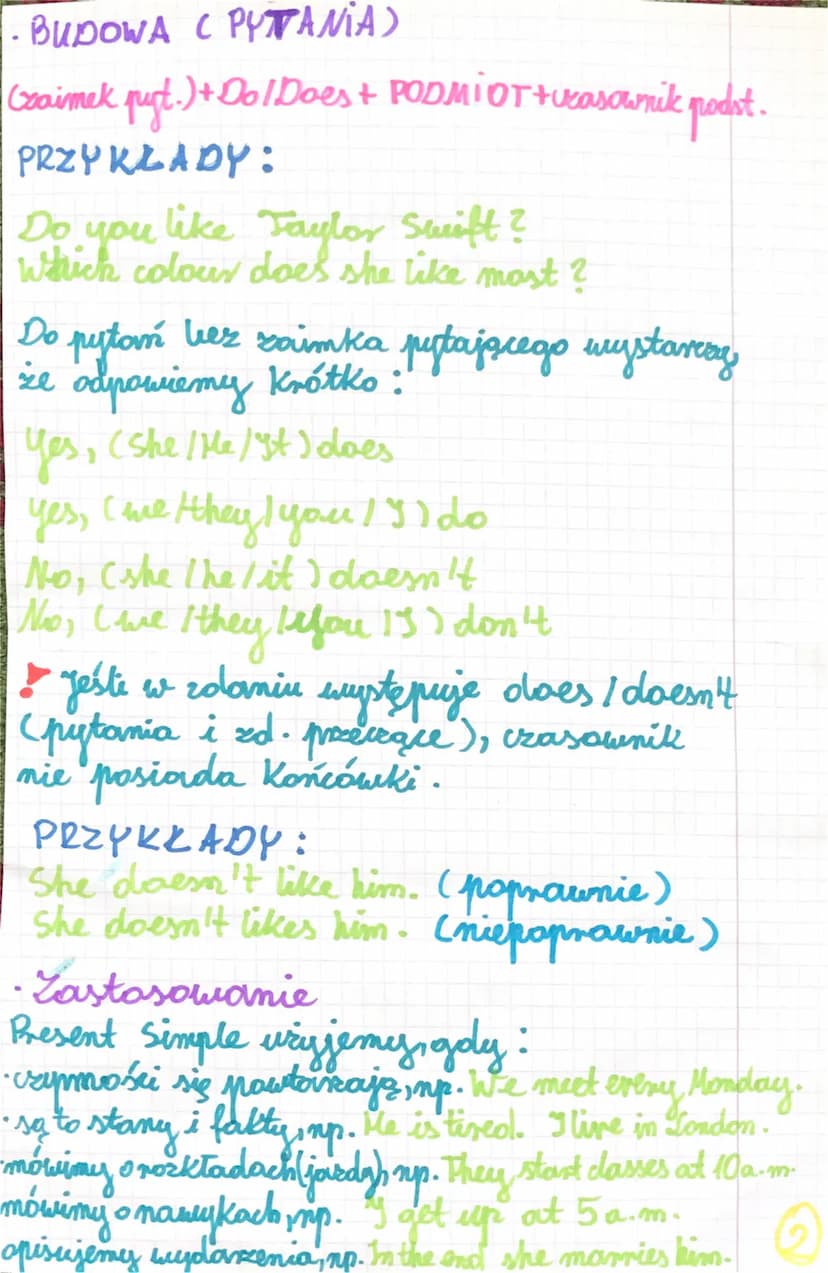 · BUDOWA ( PYTANiA)
(zaimek pyt.) + Do/Does + PODMiOT + czasownik podst.
PRZYKŁADY:
Do you like Taylor Swift?
Which colour does she like most?
Do pytań bez zaimka pytającego wystarczy,
że odpowiemy krótko:
Yes, (She/He/It) does
yes, (we/they/you/I) do
No, (she/he/it) doesn't
No, (we/they/you/I) don't
! Jeśli w zdaniu występuje does/doesn't
(pytania i zd. przeczące), czasownik
nie posiada końcówki.
PRZYKŁADY:
She doesn't like him. (poprawnie)
She doesn't likes him. (niepoprawnie)
· Zastosowanie
Present Simple użyjemy, gdy:
· czynności się powtarzają, np. We meet every Monday.
· są to stany i fakty, np. He is tired. I live in London.
· mówimy o rozkładach (jazdy), np. They start classes at 10 a.m.
mówimy o nawykach, np. I get up at 5 a.m.
opisujemy wydarzenia, np. In the end she marries him.
2